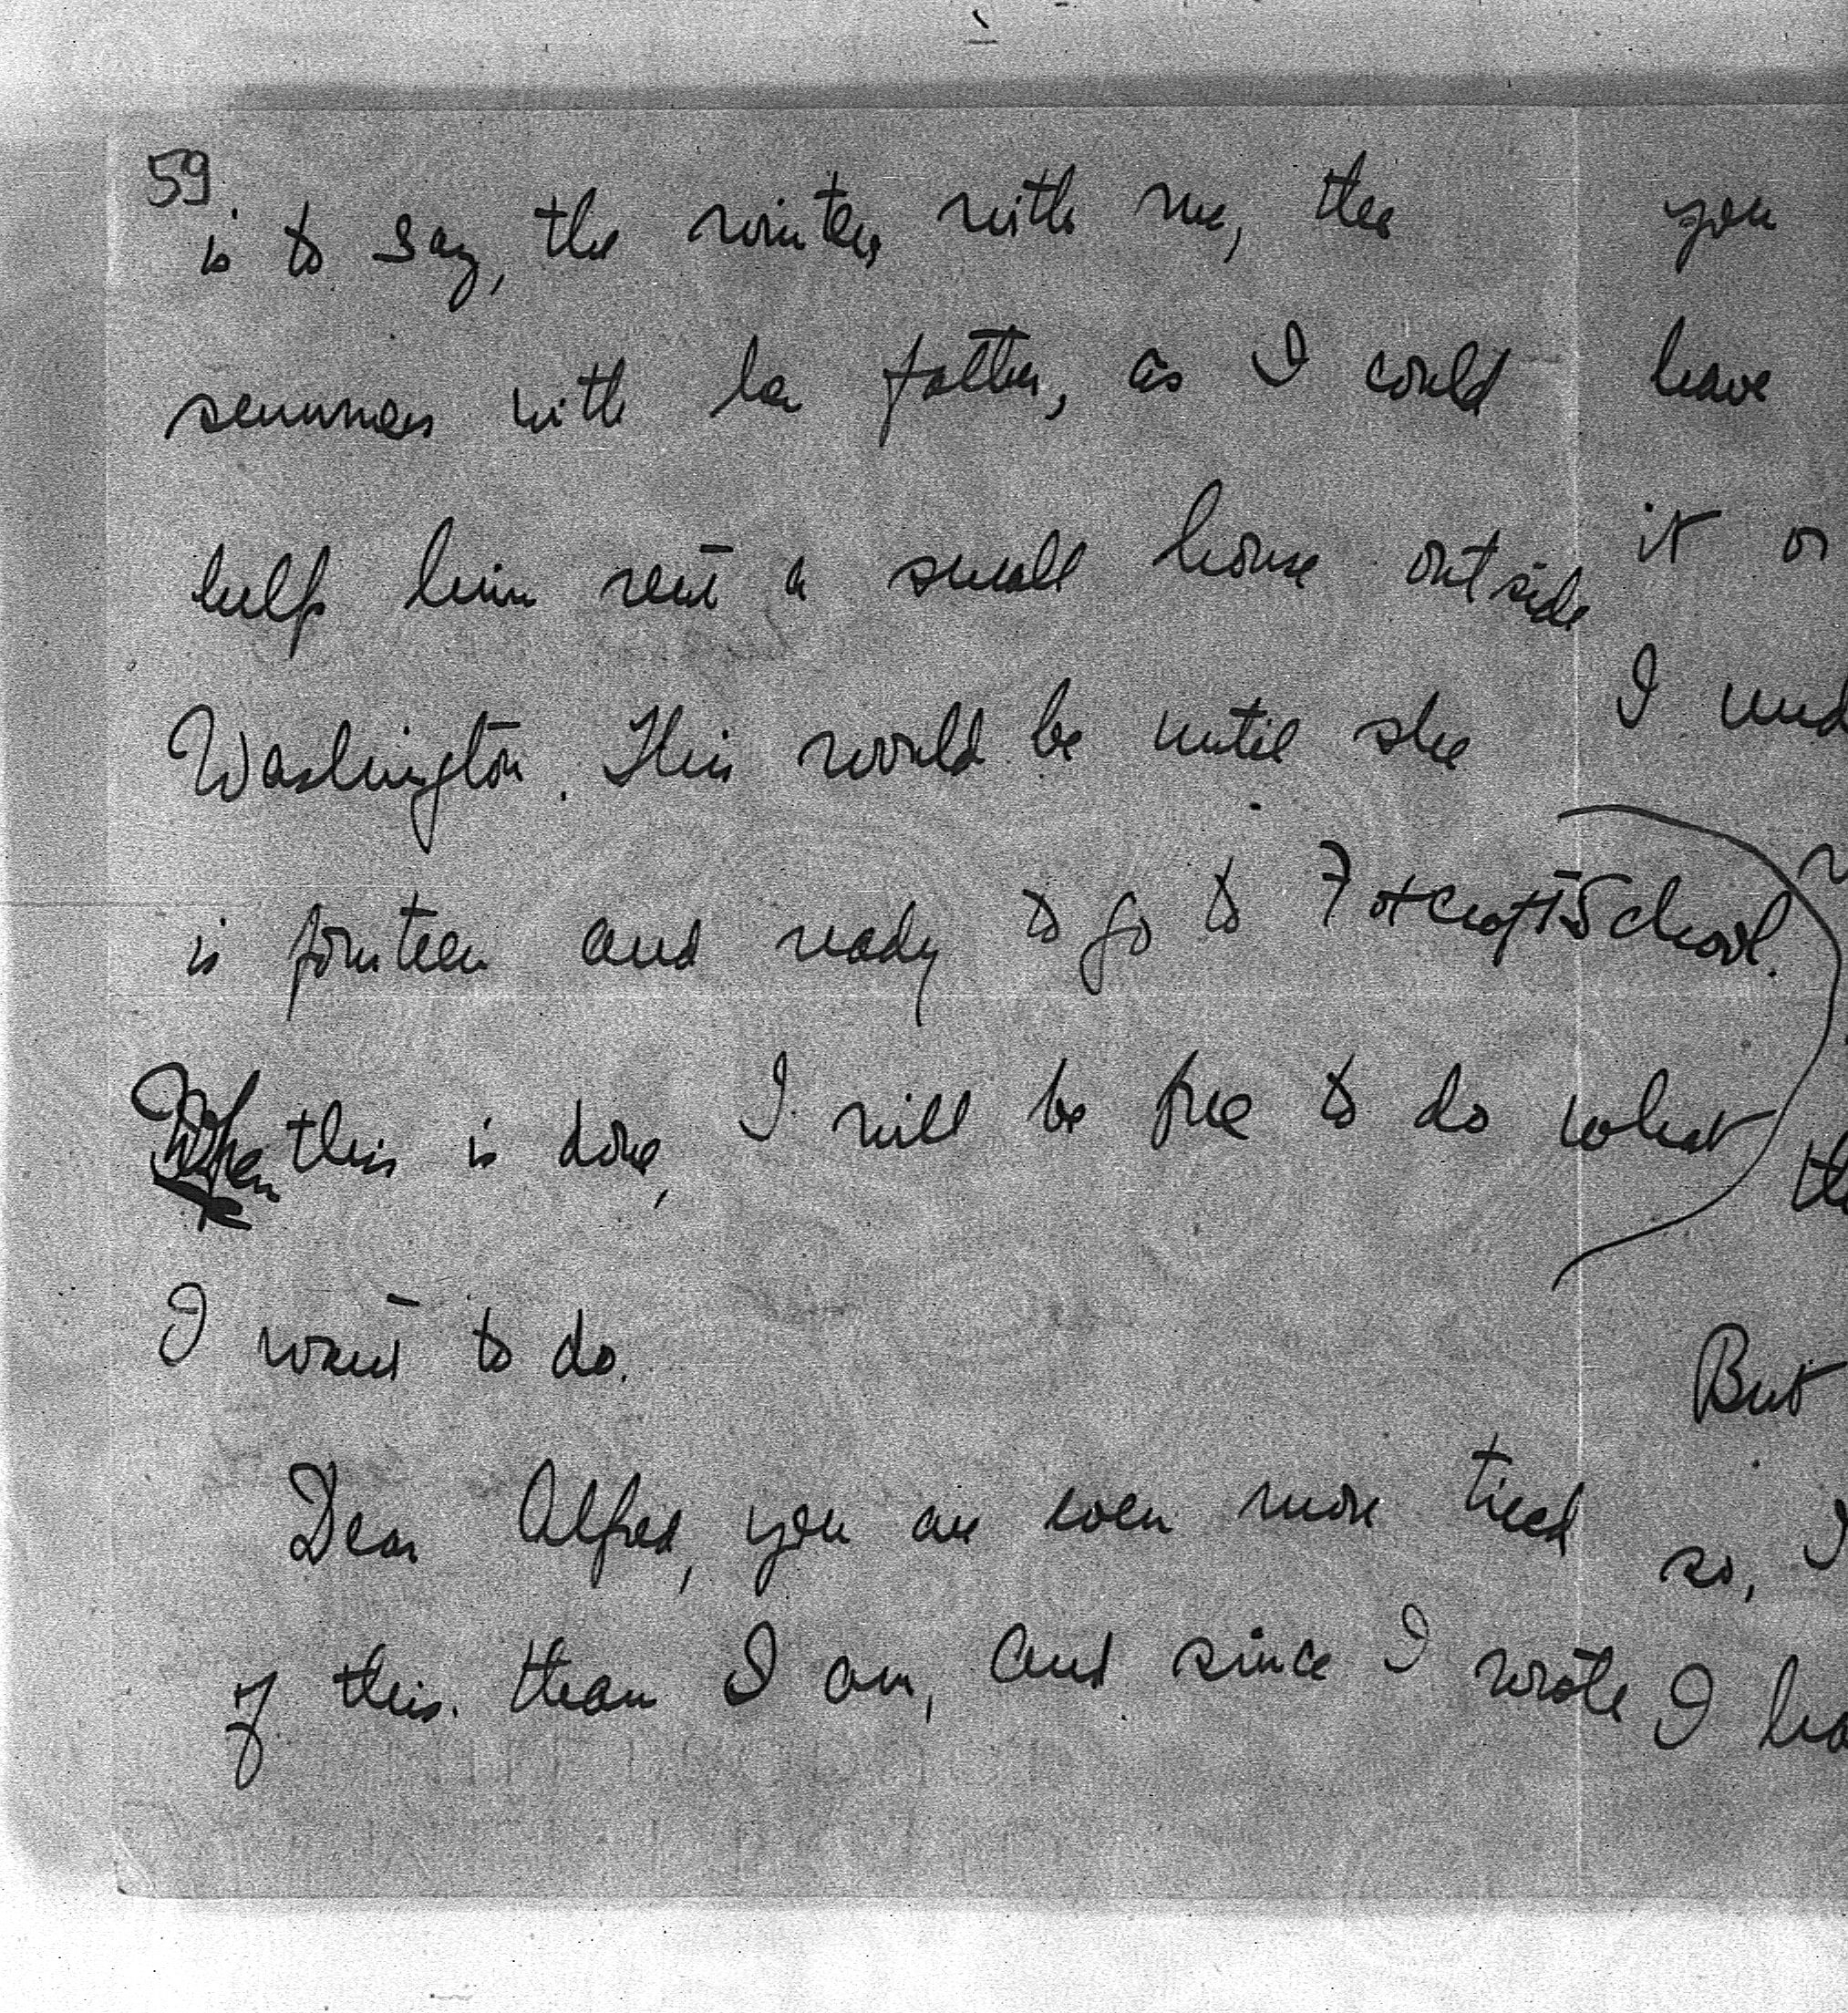 59
is to say, the winters with me, the
summers with her father, as I could
help him rent a small house outside
Washington. This would be until she
is fourteen and ready to go to Foxcroft School.
When this is done, I will be free to do what
I want to do.
Dear Alfred, you are even more tired
of this. than I am, and since I wrote
you
leave
it or
I
But
so, I
I